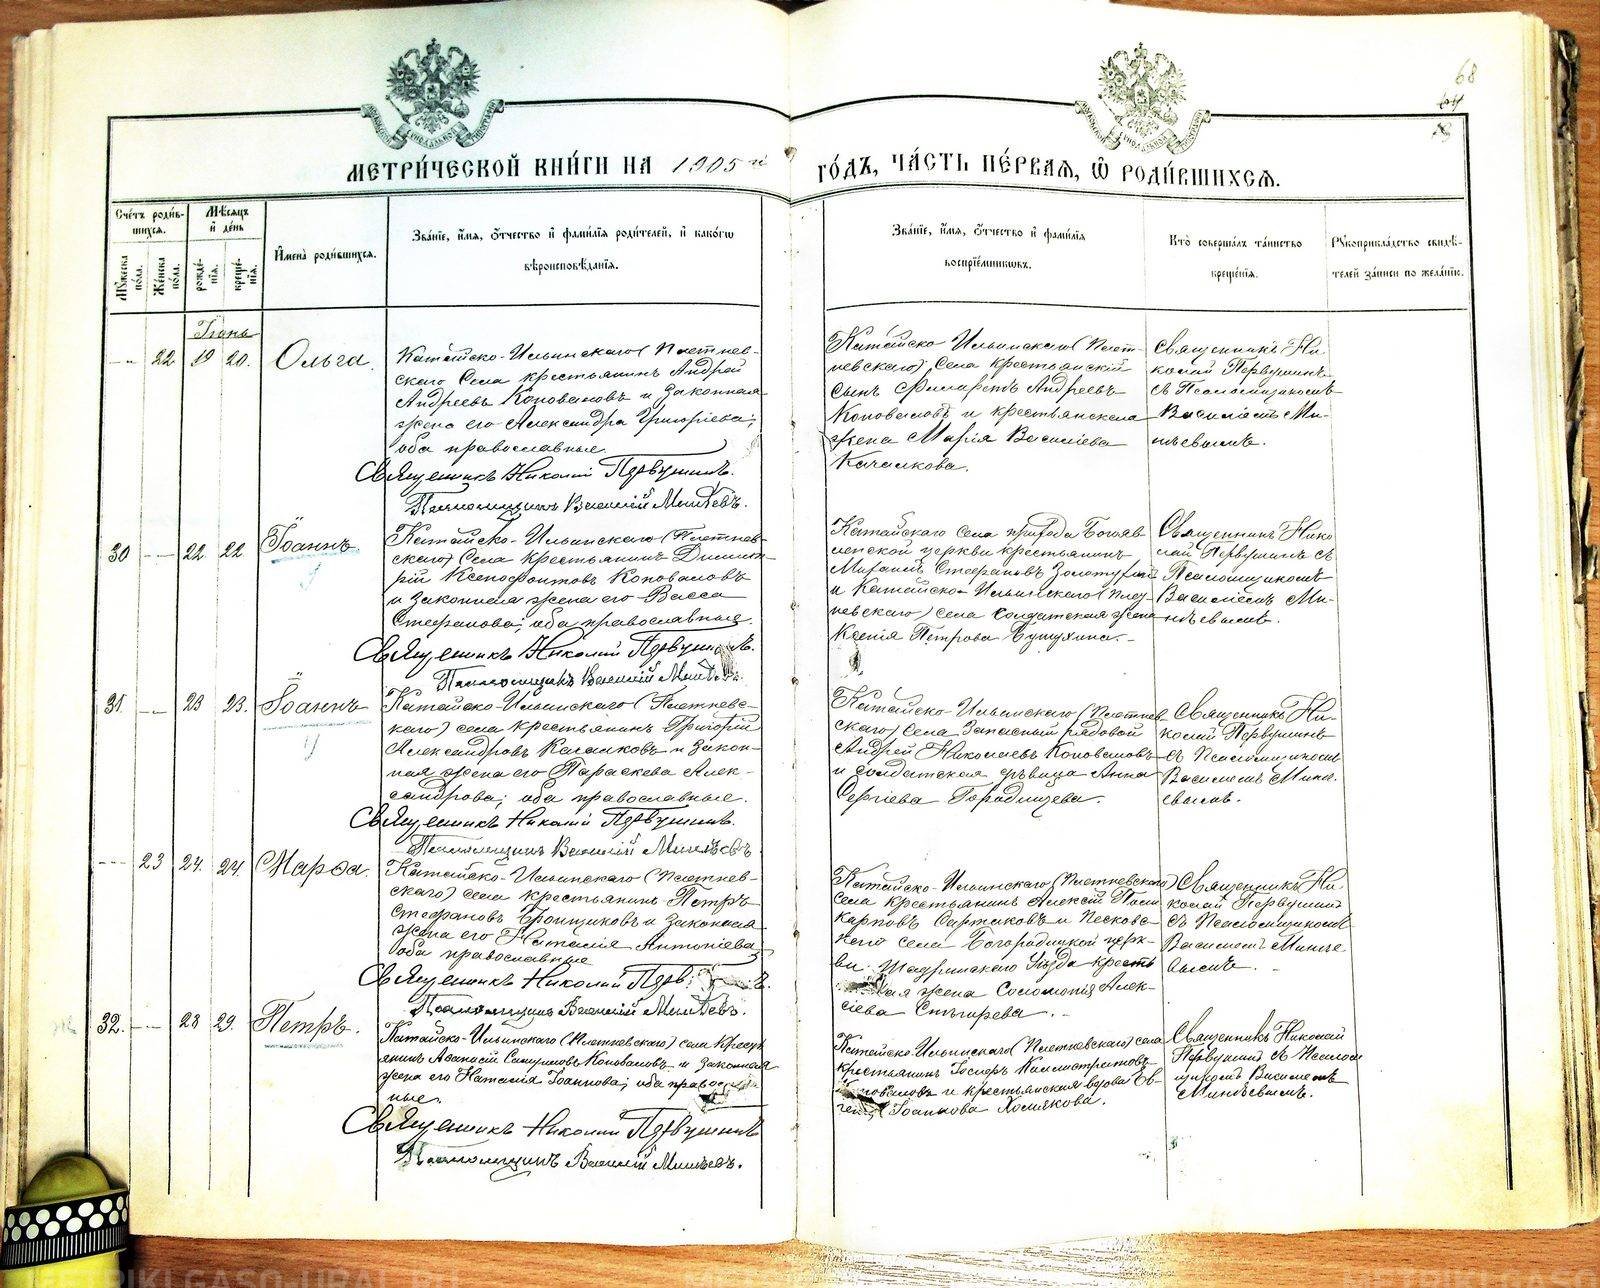 68
64
МЕТРИ́ЧЕСКОЙ КНИ́ГИ НА 1905й ГО́ДЪ, ЧА́СТЬ ПЕ́РВАЯ, Ѡ РОДИ́ВШИХСЯ.
Сче́тъ роди́в-
шихся.
Му́жеска по́ла.
Же́нска по́ла.
Мѣ́сяцъ и де́нь
рожде́нія.
креще́нія.
И́мена роди́вшихся.
Зва́ніе, и́мя, о́тчество и фами́лія роди́телей, и како́гѡ
вѣроисповѣ́данія.
Зва́ніе, и́мя, о́тчество и фами́лія
воспріе́мниковъ.
Кто̀ соверша́лъ та́инство
креще́нія.
Рукоприкла́дство свидѣ́-
телей за́писи по жела́нію.
Іюнь
22 19 20. Ольга.
Катайско-Ильинскаго (Плетнев-
скаго) села крестьянинъ Андрей
Андреевъ Коноваловъ и законная
жена его Александра Григоріева;
оба православные.
Священникъ Николай Первушинъ.
Псаломщикъ Василій Минѣевъ.
Катайско Ильинскаго (Плет-
невскаго) села крестьянскій
сынъ Филаретъ Андреевъ
Коноваловъ и крестьянская
жена Марія Василіева
Качалкова.
Священникъ Ни-
колай Первушинъ
съ Псаломщикомъ
Василіемъ Ми-
нѣевымъ.
30 22 22 Іоаннъ
Катайско-Ильинскаго (Плетнев-
скаго) села крестьянинъ Димит-
рій Ксенофонтовъ Коноваловъ
и законная жена его Васса
Стефанова; оба православные.
Священникъ Николай Первушинъ.
Псаломщикъ Василій Минѣевъ.
Катайскаго села прихода Богояв-
ленской церкви крестьянинъ
Михаилъ Стефановъ Золотухинъ
и Катайско-Ильинскаго (Плет-
невскаго) села солдатская жена
Ксенія Петрова
Священникъ Нико
лай Первушинъ съ
Псаломщикомъ
Василіемъ Ми-
нѣевымъ.
31. 23 23. Іоаннъ
Катайско-Ильинскаго (Плетневс-
каго) села крестьянинъ Григорій
Александровъ Качалковъ и закон-
ная жена его Параскева Алек-
сандрова; оба православные.
Священникъ Николай Первушинъ.
Псаломщикъ Василій Минѣевъ.
Катайско-Ильинскаго (Плетнев-
скаго) села Запасный рядовой
Андрей Николаевъ Коноваловъ
и солдатская дѣвица Анна
Сергіева Городищева.
Священникъ Ни-
колай Первушинъ
съ Псаломщикомъ
Василіемъ Минѣ-
евымъ.
23 24. 24. Марѳа.
Катайско-Ильинскаго (Плетнев-
скаго) села крестьянинъ Петръ
Стефановъ Бронщиковъ и законная
жена его Наталія Антоніева
оба православные
Священникъ Николай
Псаломщикъ Василій Минѣевъ.
Катайско-Ильинскаго (Плетневскаго)
села крестьянинъ Алексій
карповъ Сартаковъ и Песковс-
каго села Богородицкой церк-
ви Шадринскаго уѣзда кресть
ая жена Соломонія Алек-
сіева Снѣгирева.
Священникъ Ни-
колай Первушинъ
съ Псаломщикомъ
Василіемъ Минѣе
вымъ.
32. 28 29. Петръ.
Катайско-Ильинскаго (Плетневскаго) села Кресть
янинъ Аѳанасій Коноваловъ и законная
жена его Наталія Іоаннова; оба правосла
ные.
Священникъ Николай Первушинъ
Псаломщикъ Василій Минѣевъ.
Катайско-Ильинскаго (Плетневскаго) села
крестьянинъ Калистратовъ
Коноваловъ и крестьянская вдова Ев-
генія Іоаннова Хомякова.
Священникъ Николай
Первушинъ съ Псалом
щикомъ Василіемъ
Минѣевымъ.